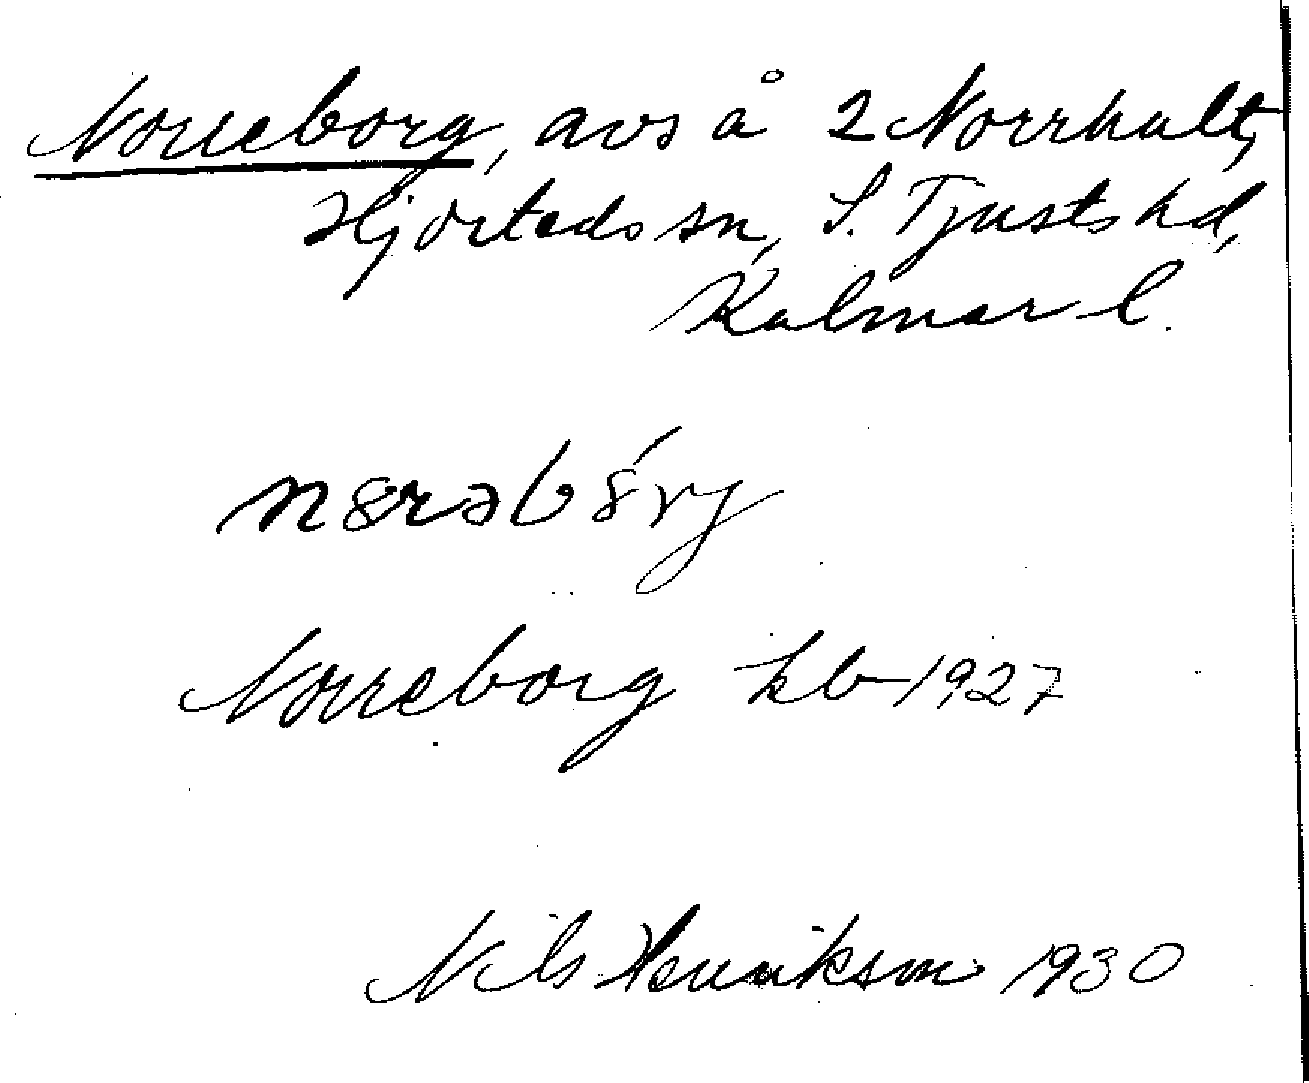 Norreborg, avs å 2 Norrhult,
Hjorteds sn, S. Tjusts hd,
Kalmar l.
Norreborg kb 1927
Nils Henrikson 1930